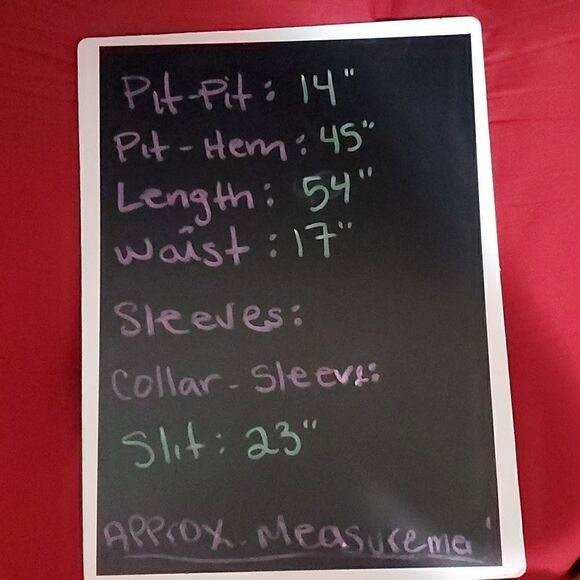 Pit-Pit: 14"
Pit-Hem: 45"
Length: 54"
waist: 17"
Sleeves:
Collar-Sleeve:
Slit: 23"
Approx. Measureme